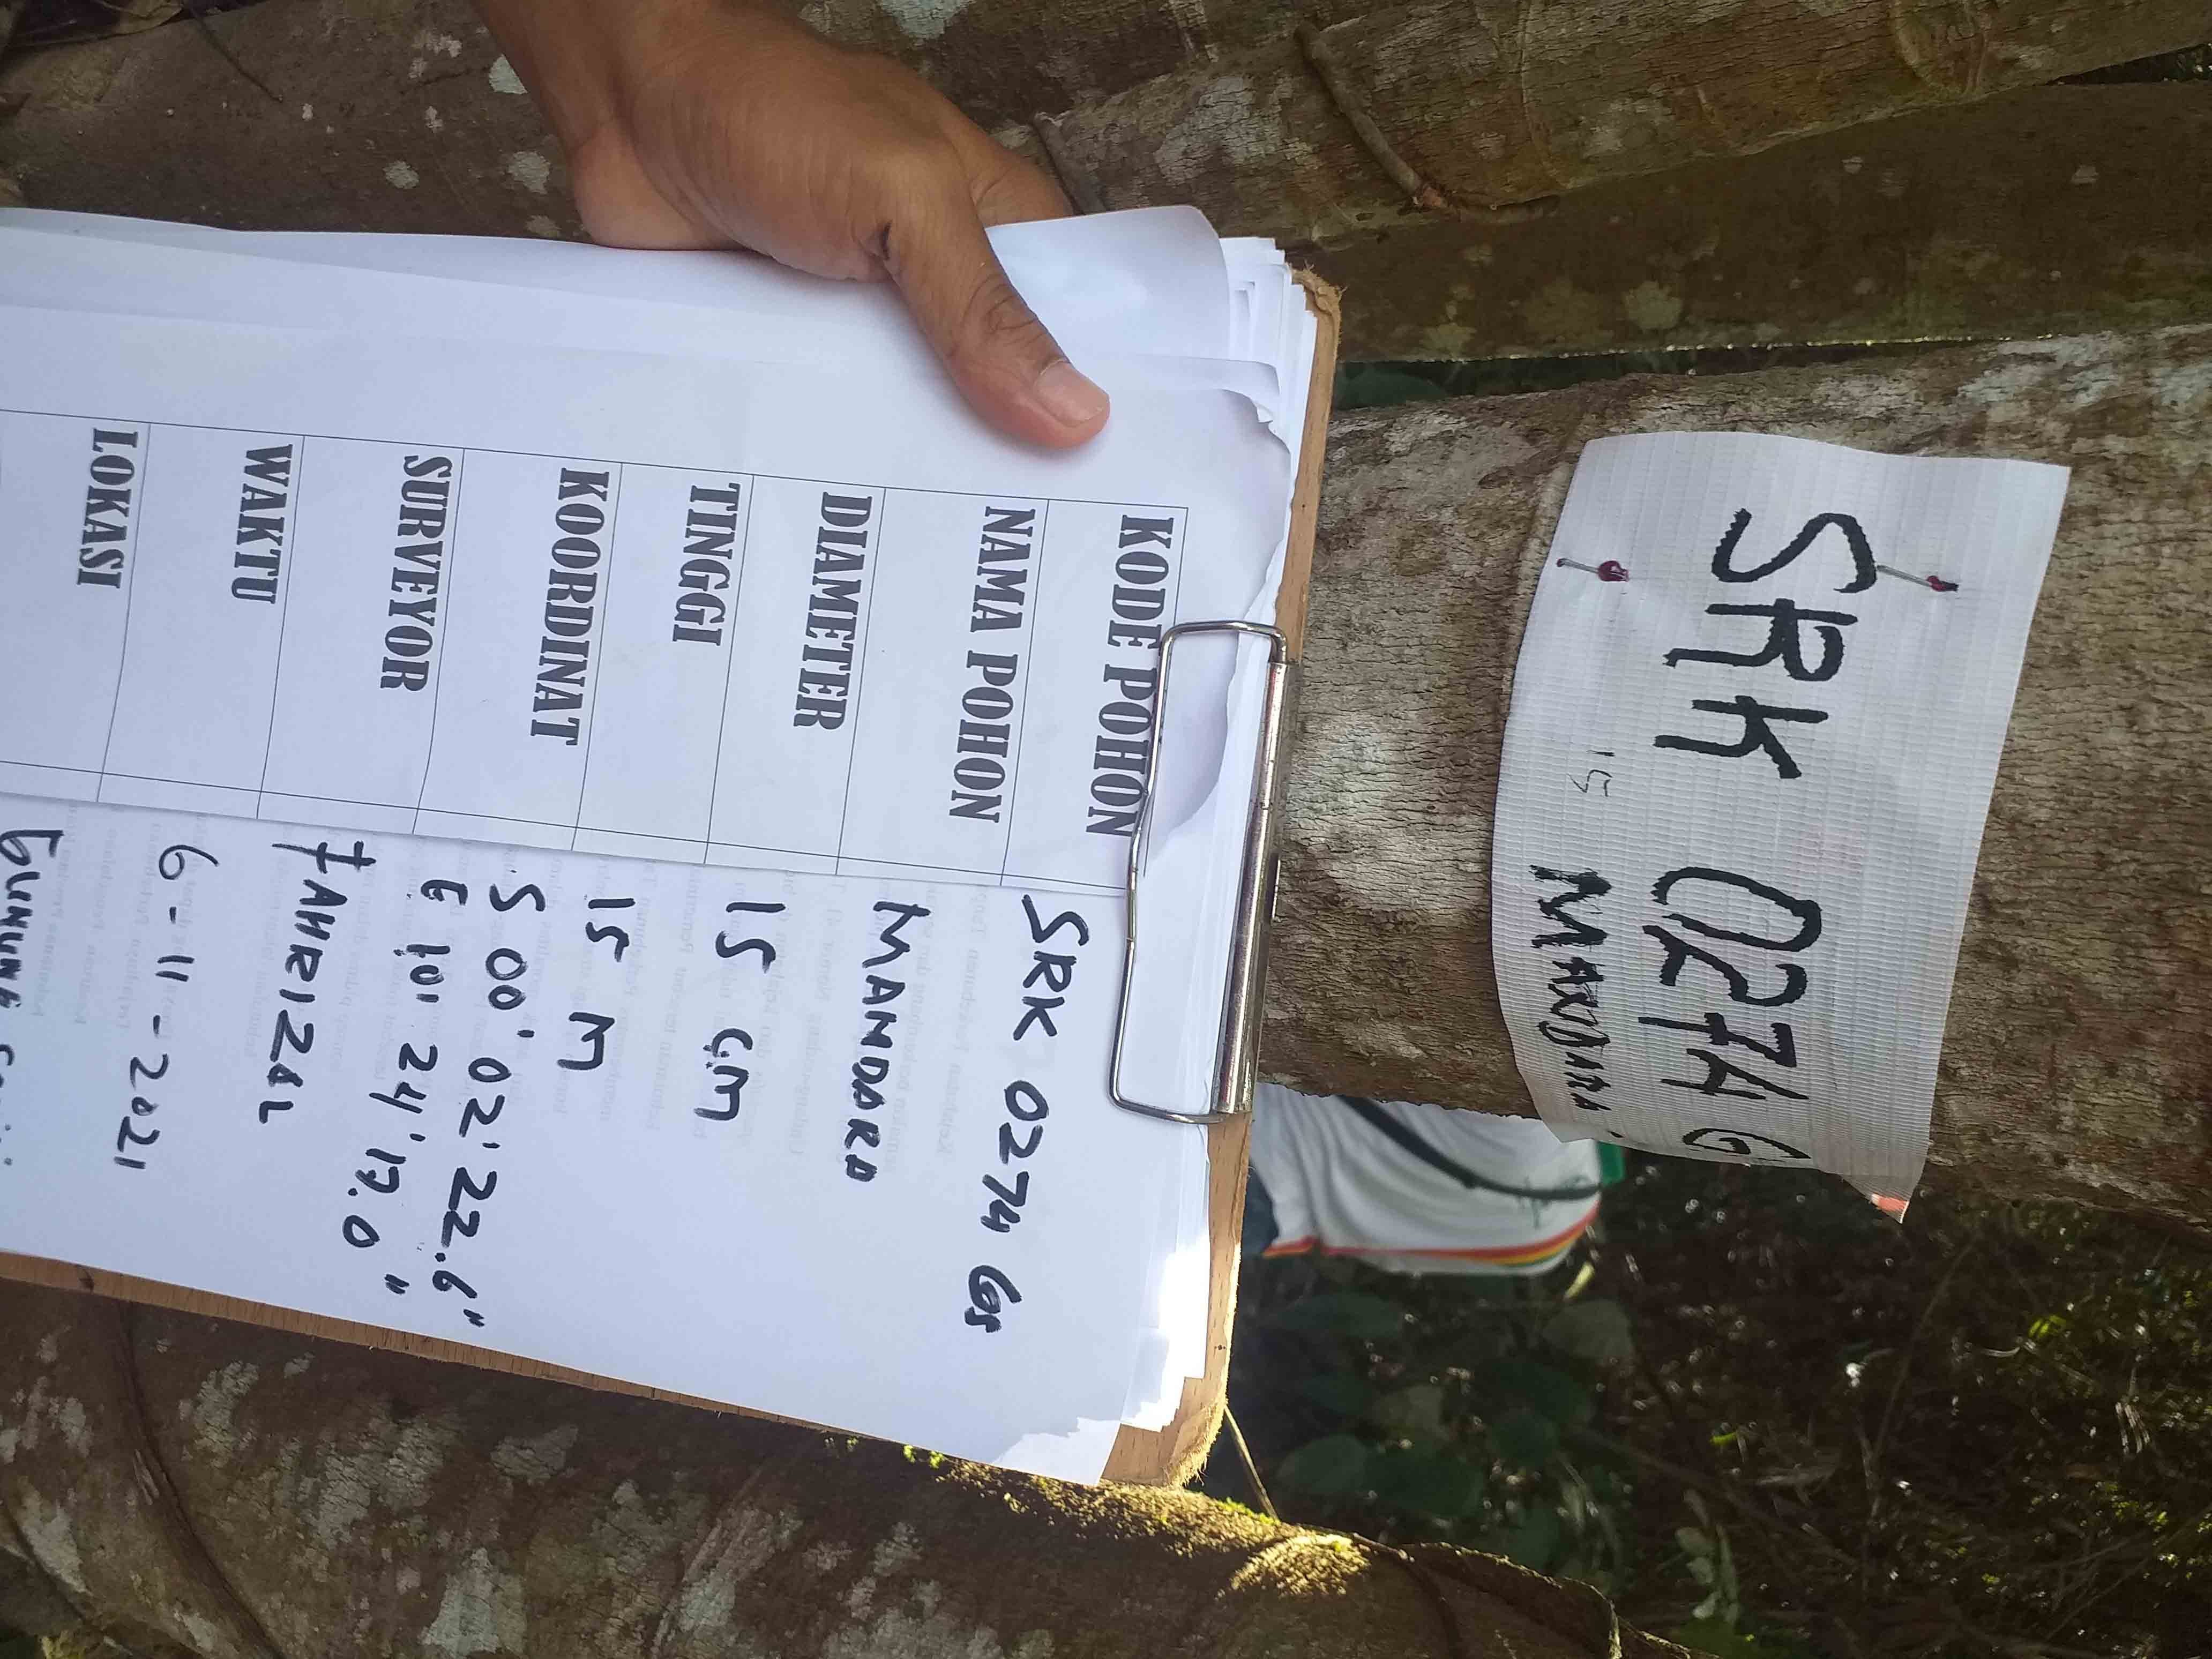 SRK 0274 G
15 MANDARA
KODE POHON SRK 0274 GS
NAMA POHON MANDARA
DIAMETER 15 CM
TINGGI 15 M
KOORDINAT S 00' 02' 22.6"
E 101 24' 17.0"
SURVEYOR FAHRIZAL
WAKTU 6-11-2021
LOKASI
GUNUNG